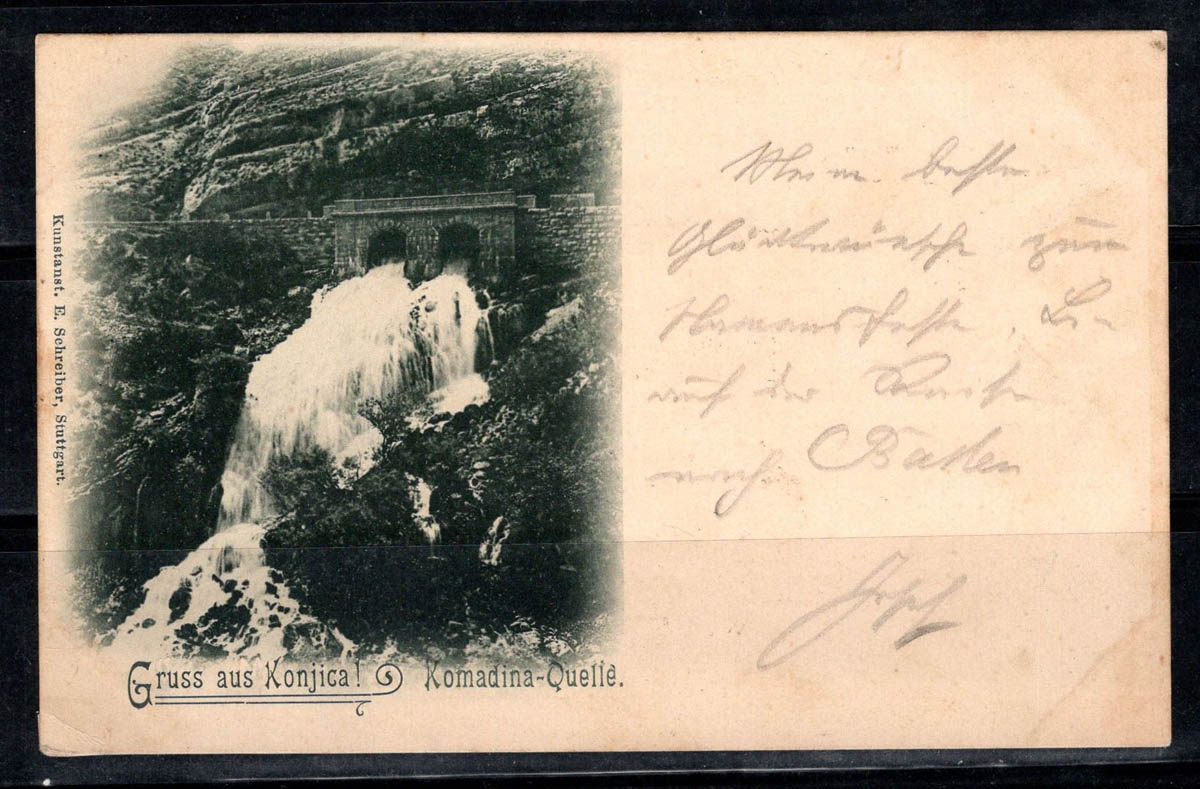 Kunstanst. E. Schreiber, Stuttgart.
Meine beste
Glückwünsche zum
Namensfeste. Bi-
auf der Reise
nach Baden
Josef
Gruss aus Konjica! Komadina-Quelle.